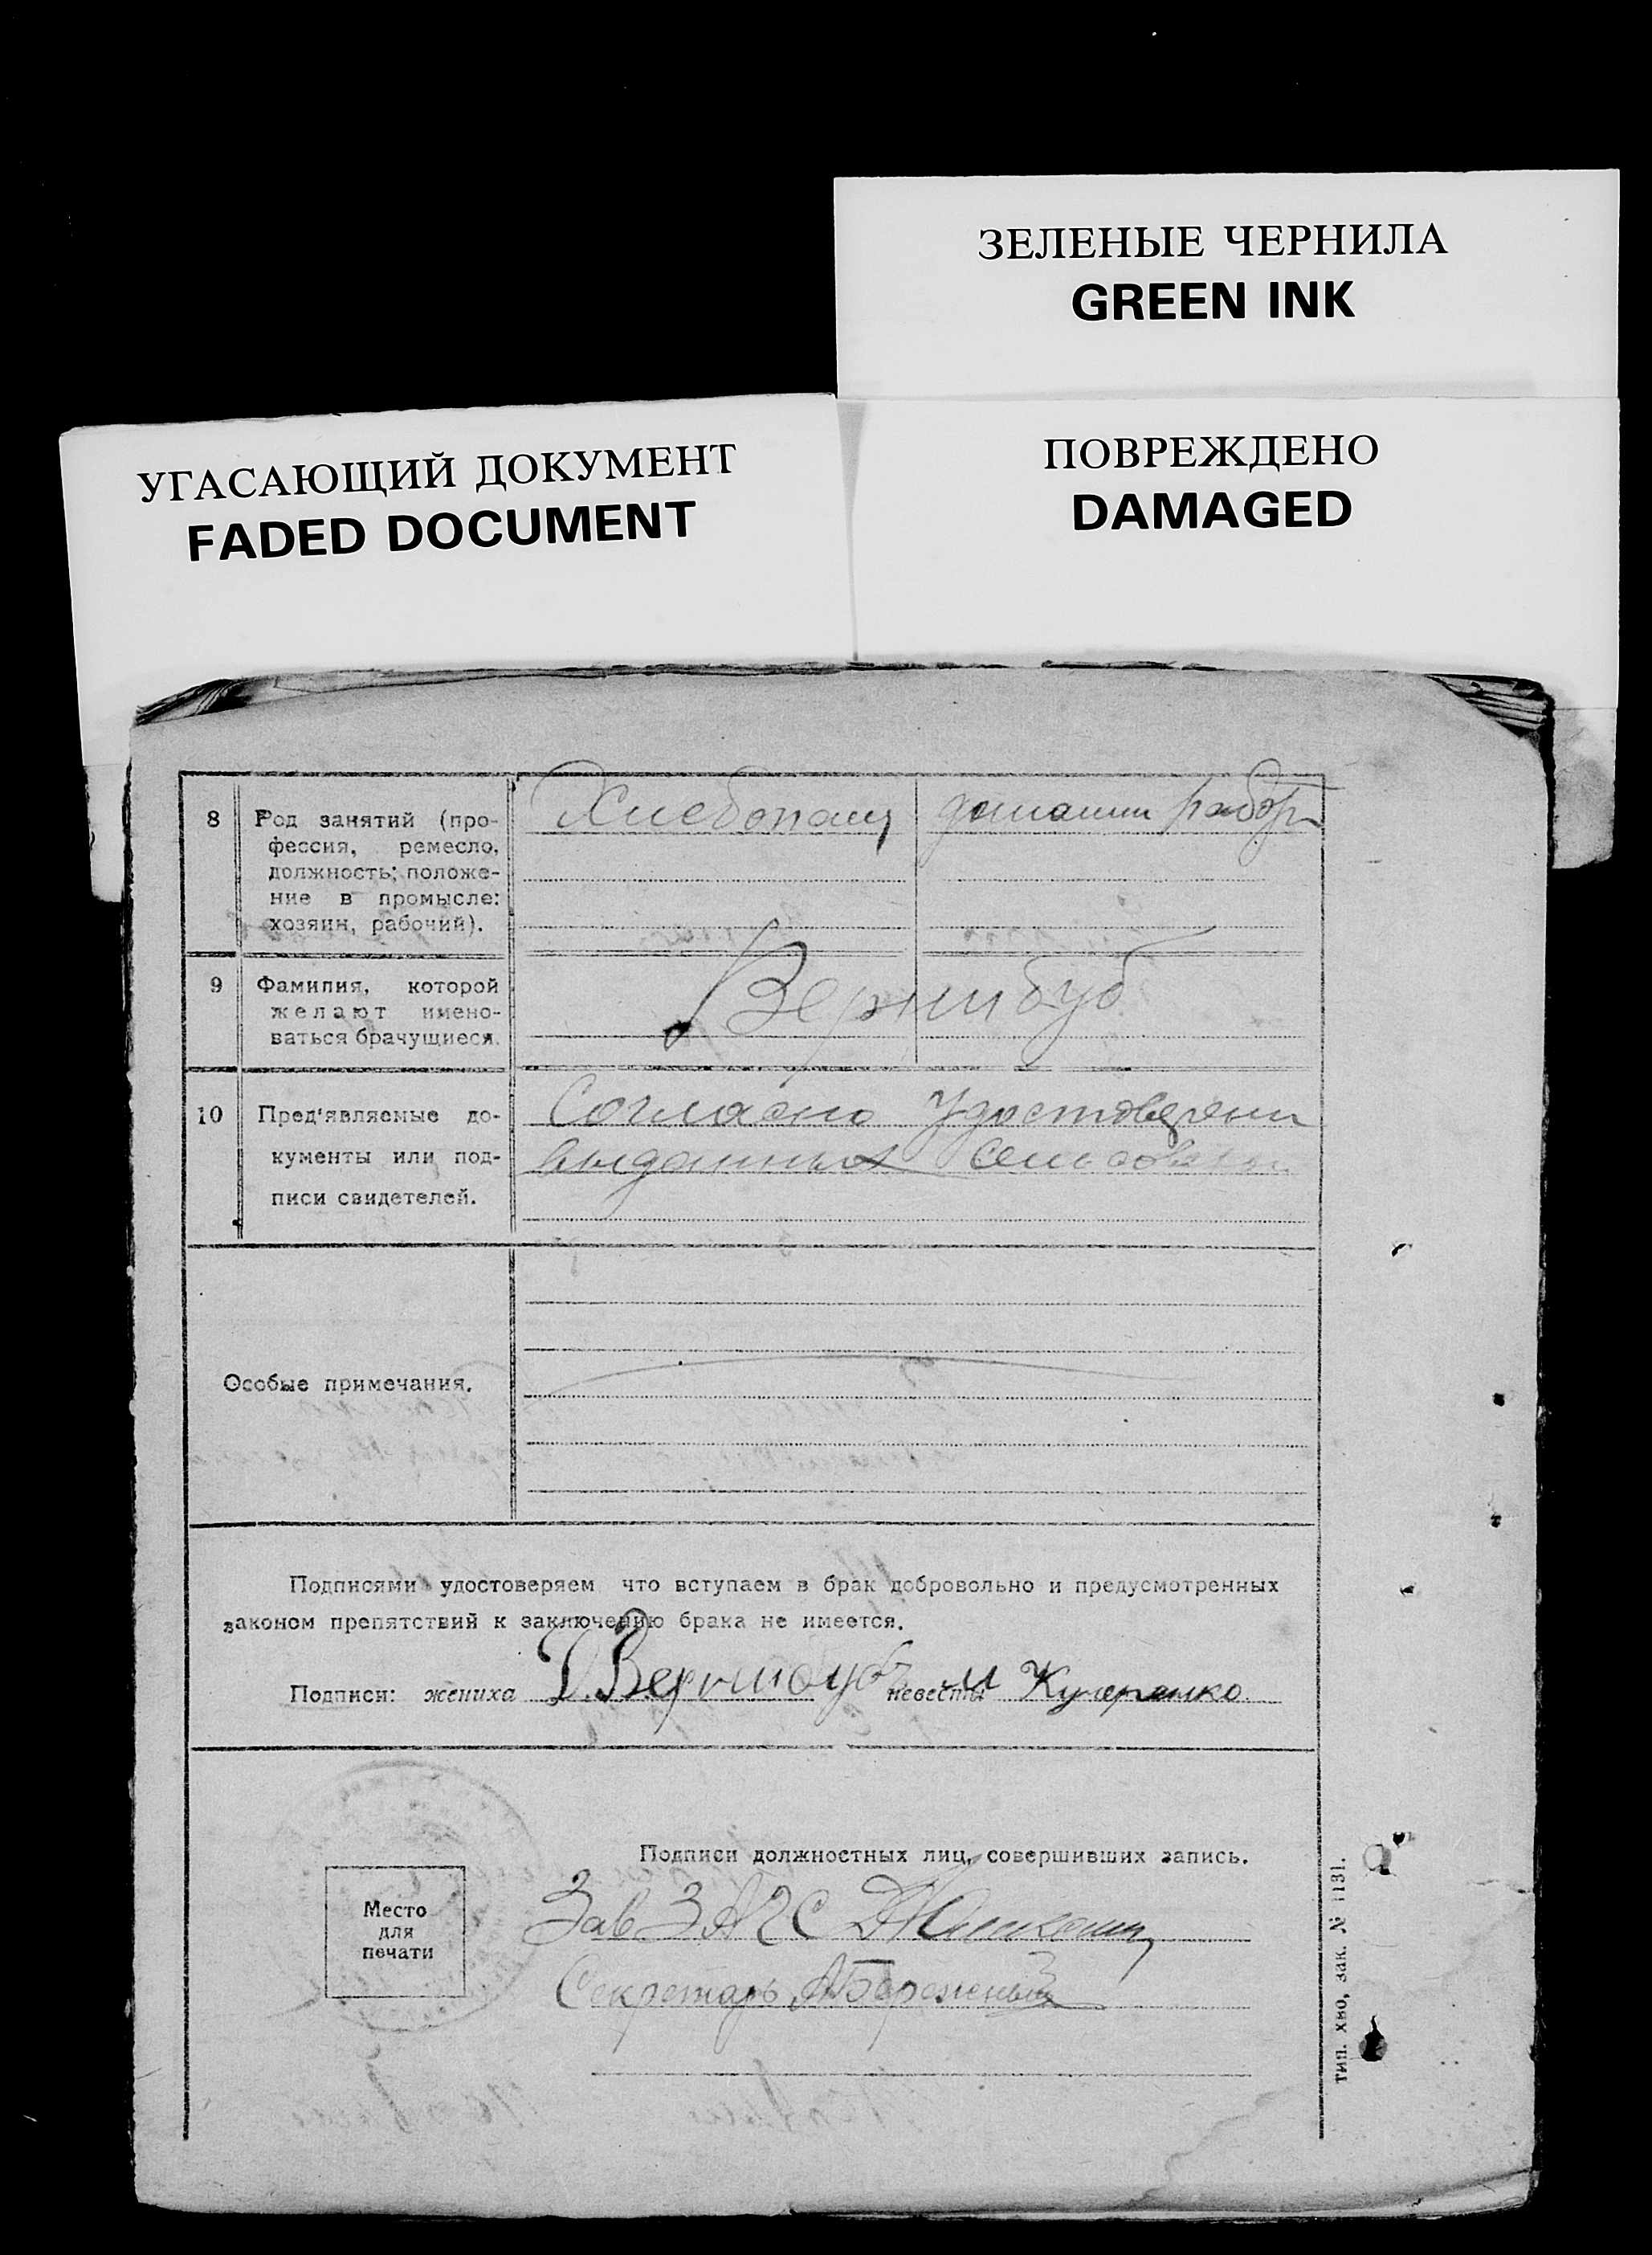 ЗЕЛЕНЫЕ ЧЕРНИЛА
GREEN INK
УГАСАЮЩИЙ ДОКУМЕНТ
FADED DOCUMENT
ПОВРЕЖДЕНО
DAMAGED
8 Род занятий (про-
фессия, ремесло,
должность; положе-
ние в промысле:
хозяин, рабочий).
Хлебопащ
домашн
9 Фамилия, которой
желают имено-
ваться брачущиеся.
Вернибуб
10 Пред'являемые до-
кументы или под-
писи свидетелей.
Согласно удостоверени
выданных
Особые примечания.
Подписями удостоверяем что вступаем в брак добровольно и предусмотренных
законом препятствий к заключению брака не имеется.
Подписи: жениха невесты М Кучеренко
Подписи должностных лиц, совершивших запись.
Место
для
печати
Зав ЗАГС
Секретарь
тип. хво, зак. № 1131.